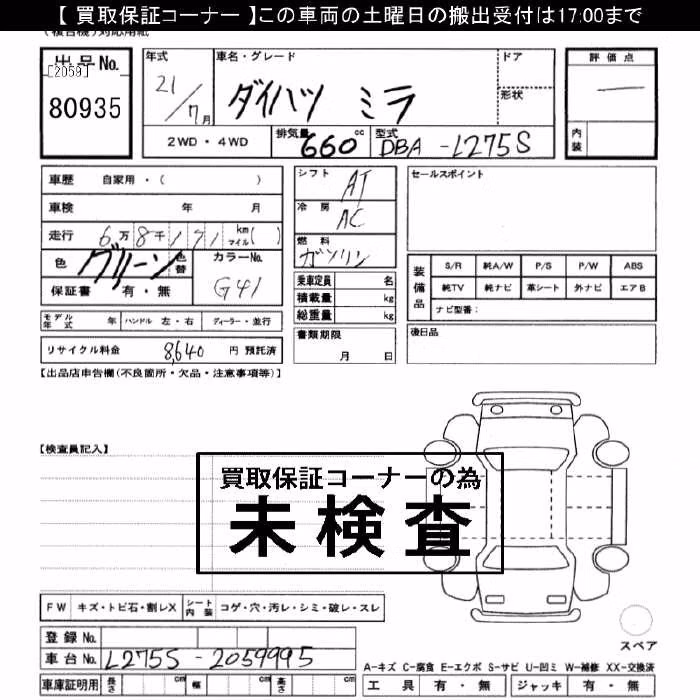 【 買取保証コーナー 】この車両の土曜日の搬出受付は17:00まで
(複合機)対応用紙
出品No.
[2059]
80935
年式
21/7月
車名・グレード
ダイハツ ミラ
ドア
形状
2WD・4WD
排気量
660cc
型式
DBA-L275S
評価点
—
内装
車歴 自家用・( )
車検 年 月
走行 6万8千171 km マイル( )
色 グリーン 色替
カラーNo.
G41
保証書 有・無
モデル年式 年 ハンドル 左・右 ディーラー・並行
リサイクル料金 8,640 円 預託済
シフト AT
冷房 AC
燃料 ガソリン
乗車定員 名
積載量 kg
総重量 kg
書類期限
月 日
セールスポイント
装備品
S/R 純A/W P/S P/W ABS
純TV 純ナビ 革シート 外ナビ エアB
ナビ型番:
後日品
【出品店申告欄(不良箇所・欠品・注意事項等)】
【検査員記入】
買取保証コーナーの為
未検査
FW キズ・トビ石・割レX シート内装 コゲ・穴・汚レ・シミ・破レ・スレ
登録No.
車台No. L275S-2059995
車庫証明用 長さ cm 幅 cm 高さ cm
スペア
A-キズ C-腐食 E-エクボ S-サビ U-凹ミ W-補修 XX-交換済
工具 有・無 ジャッキ 有・無